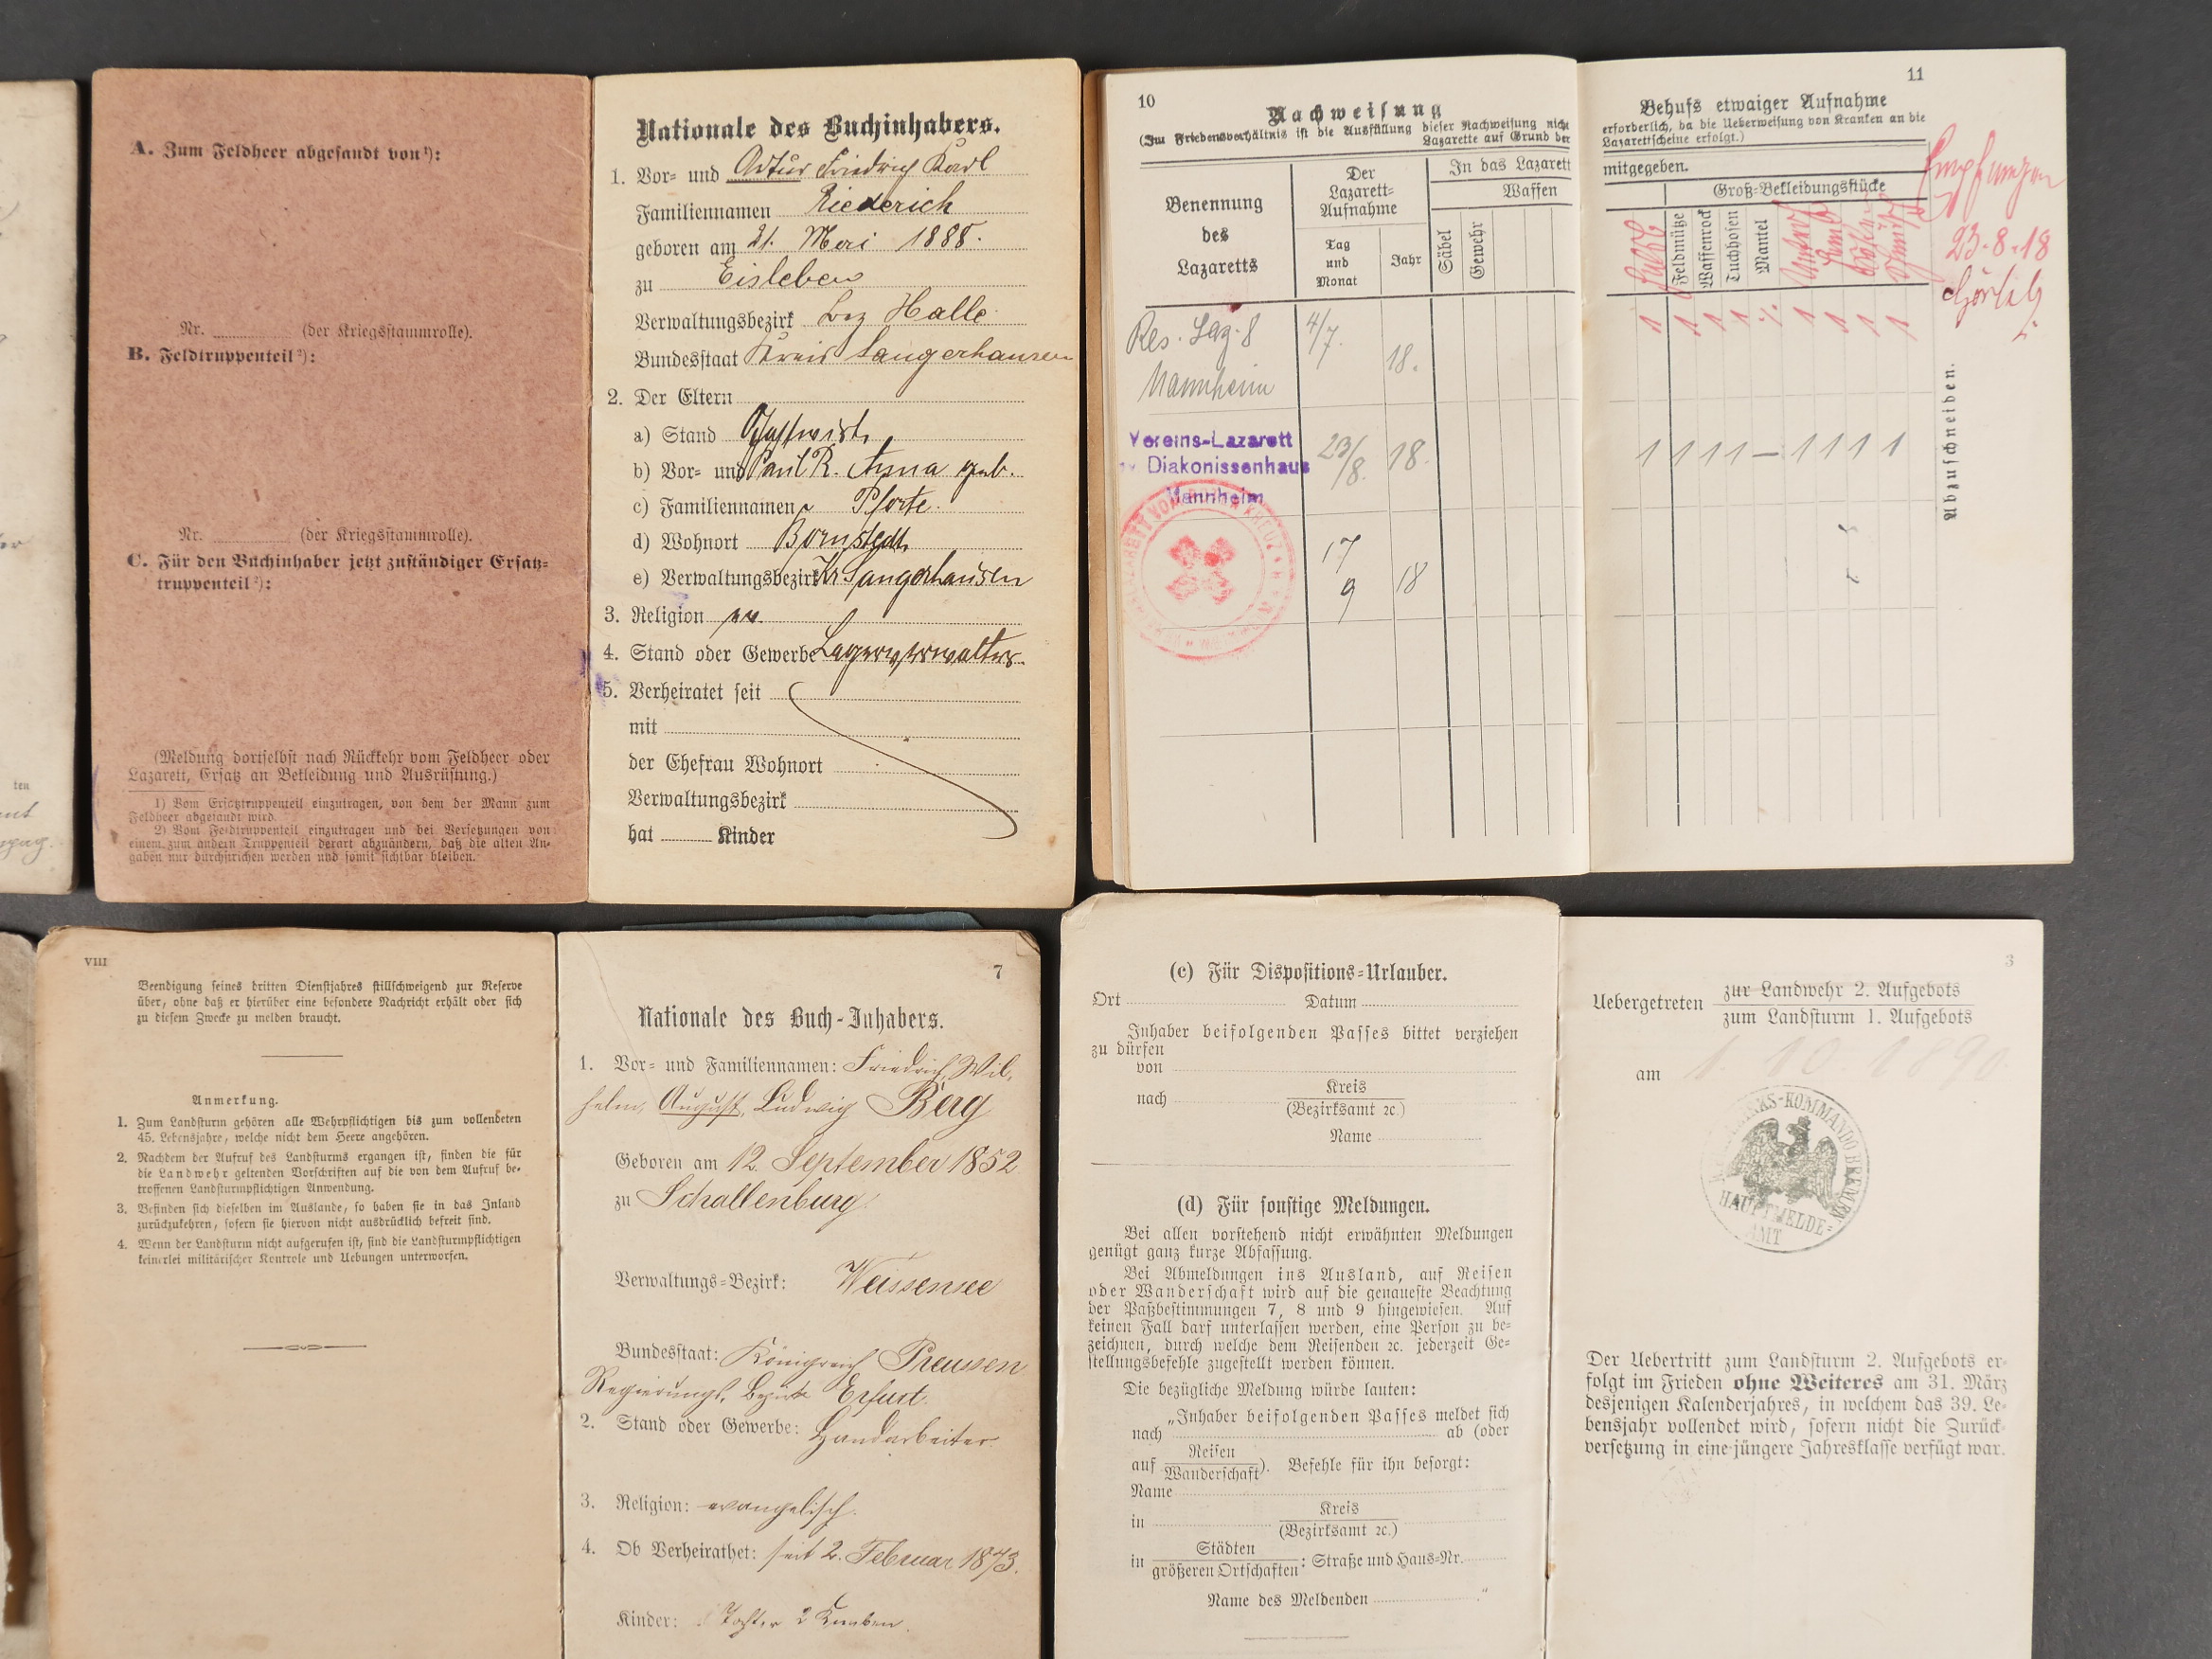 A. Zum Feldheer abgesandt von¹):
Nr. (der Kriegsstammrolle).
B. Feldtruppenteil²):
Nr. (der Kriegsstammrolle).
C. Für den Buchinhaber jetzt zuständiger Ersatz-
truppenteil²):
(Meldung dortselbst nach Rückkehr vom Feldheer oder
Lazarett, Ersatz an Bekleidung und Ausrüstung.)
1) Vom Ersatztruppenteil einzutragen, von dem der Mann zum
Feldheer abgesandt wird.
2) Vom Feldtruppenteil einzutragen und bei Versetzungen von
einem zum andern Truppenteil derart abzuändern, daß die alten An-
gaben nur durchstrichen werden und somit sichtbar bleiben.
Nationale des Buchinhabers.
1. Vor- und Artur Friedrich Karl
Familiennamen Riederich
geboren am 21. Mai 1888.
zu Eisleben
Verwaltungsbezirk Bez Halle
Bundesstaat Kreis Sangerhausen
2. Der Eltern
a) Stand Gastwirth
b) Vor- und Paul R. Anna geb.
c) Familiennamen Pforte.
d) Wohnort Bornstedt
e) Verwaltungsbezirk Kr Sangerhausen
3. Religion ev.
4. Stand oder Gewerbe Lagerverwalter
5. Verheiratet seit
mit
der Ehefrau Wohnort
Verwaltungsbezirk
hat Kinder
10
Nachweisung
(Im Friedensverhältnis ist die Ausfüllung dieser Nachweisung nicht
Lazarette auf Grund der
Benennung
des
Lazaretts
Der
Lazarett-
Aufnahme
Tag
und
Monat
Jahr
In das Lazarett
Waffen
Säbel
Gewehr
Res. Laz. 8 4/7. 18.
Mannheim
Vereins-Lazarett
Diakonissenhaus 23/8. 18.
Mannheim
17
9 18
11
Behufs etwaiger Aufnahme
erforderlich, da die Ueberweisung von Kranken an die
Lazarettscheine erfolgt.)
mitgegeben.
Groß-Bekleidungsstücke
Feldmütze
Waffenrock
Tuchhosen
Mantel
Empfangen
23.8.18
1 1 1 1 % 1 1 1 1
1 1 1 1 — 1 1 1 1
Abzuschneiden.
VIII
Beendigung seines dritten Dienstjahres stillschweigend zur Reserve
über, ohne daß er hierüber eine besondere Nachricht erhält oder sich
zu diesem Zwecke zu melden braucht.
Anmerkung.
1. Zum Landsturm gehören alle Wehrpflichtigen bis zum vollendeten
45. Lebensjahre, welche nicht dem Heere angehören.
2. Nachdem der Aufruf des Landsturms ergangen ist, finden die für
die Landwehr geltenden Vorschriften auf die von dem Aufruf be-
troffenen Landsturmpflichtigen Anwendung.
3. Befinden sich dieselben im Auslande, so haben sie in das Inland
zurückzukehren, sofern sie hiervon nicht ausdrücklich befreit sind.
4. Wenn der Landsturm nicht aufgerufen ist, sind die Landsturmpflichtigen
keinerlei militärischer Kontrole und Uebungen unterworfen.
7
Nationale des Buch-Inhabers.
1. Vor- und Familiennamen: Friedrich, Wil-
helm, August, Ludwig Berg
Geboren am 12. September 1852
zu Schallenburg
Verwaltungs-Bezirk: Weissensee
Bundesstaat: Königreich Preussen
Regierungs-Bezirk Erfurt.
2. Stand oder Gewerbe: Handarbeiter
3. Religion: evangelisch.
4. Ob Verheirathet: seit 2. Februar 1873.
Kinder: Tochter 2 Knaben.
(c) Für Dispositions-Urlauber.
Ort Datum
Inhaber beifolgenden Passes bittet verziehen
zu dürfen
von
nach Kreis
(Bezirksamt ꝛc.)
Name
(d) Für sonstige Meldungen.
Bei allen vorstehend nicht erwähnten Meldungen
genügt ganz kurze Abfassung.
Bei Abmeldungen ins Ausland, auf Reisen
oder Wanderschaft wird auf die genaueste Beachtung
der Paßbestimmungen 7, 8 und 9 hingewiesen. Auf
keinen Fall darf unterlassen werden, eine Person zu be-
zeichnen, durch welche dem Reisenden ꝛc. jederzeit Ge-
stellungsbefehle zugestellt werden können.
Die bezügliche Meldung würde lauten:
„Inhaber beifolgenden Passes meldet sich
nach ab (oder
auf Reisen
Wanderschaft). Befehle für ihn besorgt:
Name
in Kreis
(Bezirksamt ꝛc.)
in Städten
größeren Ortschaften: Straße und Haus-Nr.
Name des Meldenden “
3
Uebergetreten zur Landwehr 2. Aufgebots
zum Landsturm 1. Aufgebots
am 1. 10. 1890.
KOMMANDO
HAUPTMELDE-
AMT
Der Uebertritt zum Landsturm 2. Aufgebots er-
folgt im Frieden ohne Weiteres am 31. März
desjenigen Kalenderjahres, in welchem das 39. Le-
bensjahr vollendet wird, sofern nicht die Zurück-
versetzung in eine jüngere Jahresklasse verfügt war.